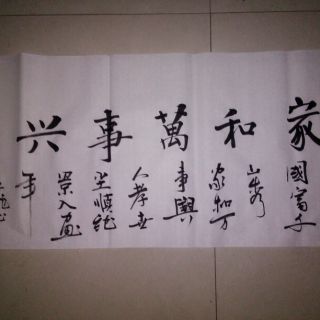 家和萬事兴
國富千
山秀
家和万
事興
人孝
順
景入画
年